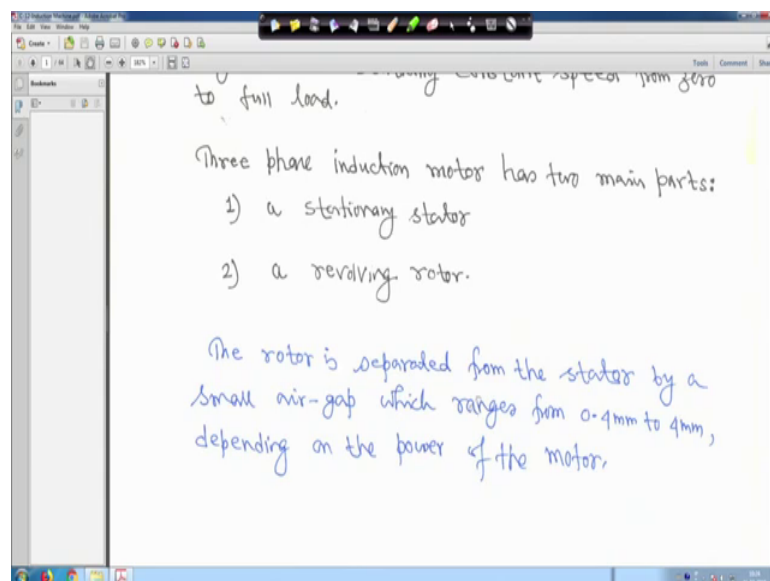 File Edit View Window Help
Create
Tools Comment
Bookmarks
constant speed from zero
to full load.
Three phase induction motor has two main parts:
1) a stationary stator
2) a revolving rotor.
The rotor is separaded from the stator by a
small air-gap which ranges from 0.4mm to 4mm,
depending on the power of the motor.